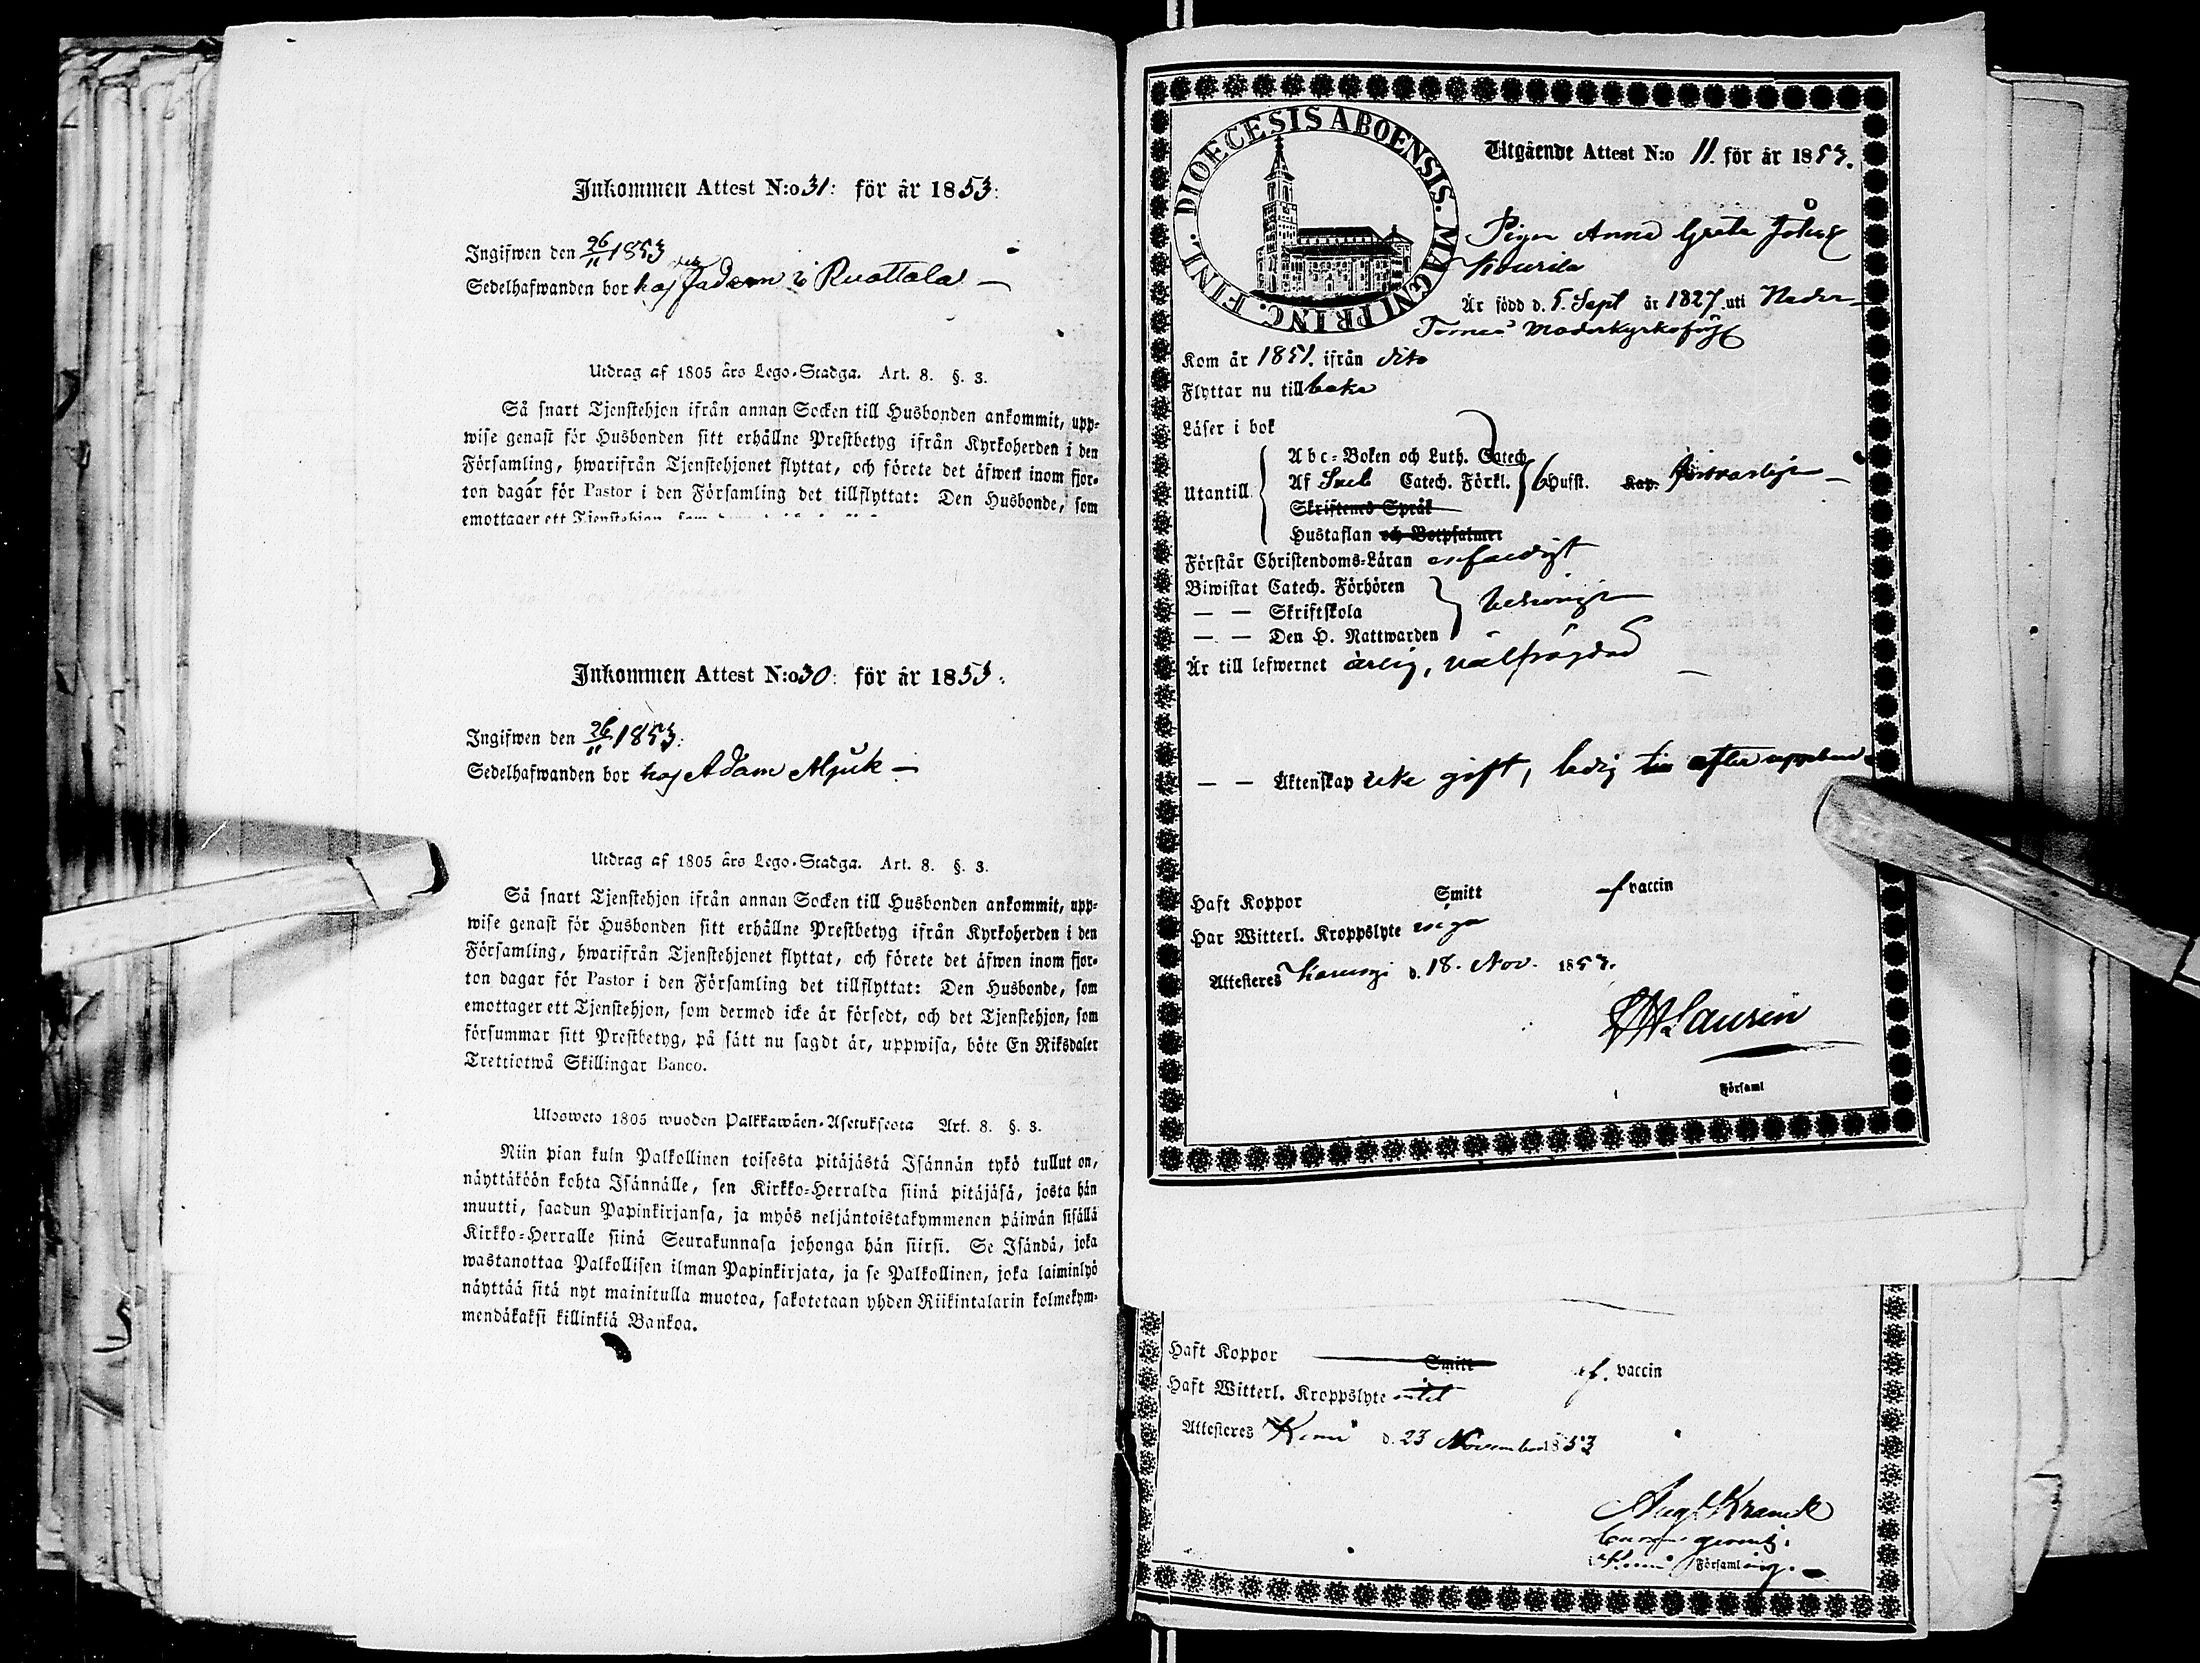 Inkommen Attest N:o 31: för år 1853:
Ingifwen den 26/11 1853
Sedelhafwanden bor hos Fadren i Ruottala —
Utdrag af 1805 års Lego-Stadga. Art. 8. §. 3.
Så snart Tjenstehjon ifrån annan Socken till Husbonden ankommit, upp-
wise genast för Husbonden sitt erhållne Prestbetyg ifrån Kyrkoherden i den
Församling, hwarifrån Tjenstehjonet flyttat, och förete det äfwen inom fjor-
ton dagar för Pastor i den Församling det tillflyttat: Den Husbonde, som
emottager ett Tjenstehjon, som
Inkommen Attest N:o 30: för år 1853:
Ingifwen den 26/11 1853:
Sedelhafwanden bor hos Adam Mjuk —
Utdrag af 1805 års Lego-Stadga. Art. 8. §. 3.
Så snart Tjenstehjon ifrån annan Socken till Husbonden ankommit, upp-
wise genast för Husbonden sitt erhållne Prestbetyg ifrån Kyrkoherden i den
Församling, hwarifrån Tjenstehjonet flyttat, och förete det äfwen inom fjor-
ton dagar för Pastor i den Församling det tillflyttat: Den Husbonde, som
emottager ett Tjenstehjon, som dermed icke är försedt, och det Tjenstehjon, som
försummar sitt Prestbetyg, på sätt nu sagdt är, uppwisa, böte En Riksdaler
Trettiotwå Skillingar Banco.
Ulosweto 1805 wuoden Palkkawäen-Asetuksesta Art. 8. §. 3.
Niin pian kuin Palkollinen toisesta pitäjästä Isännän tykö tullut on,
näyttäköön kohta Isännälle, sen Kirkko-Herralda siinä pitäjäsä, josta hän
muutti, saadun Papinkirjansa, ja myös neljäntoistakymmenen päiwän sisällä
Kirkko-Herralle siinä Seurakunnasa johonga hän siirsi. Se Isändä, joka
wastanottaa Palkollisen ilman Papinkirjata, ja se Palkollinen, joka laiminlyö
näyttää sitä nyt mainitulla muotoa, sakotetaan yhden Riikintalarin kolmekym-
mendäkaksi killinkiä Bankoa.
DIOECESIS ABOENSIS. MAGNI PRINC. FINL.
Utgående Attest N:o 11. för år 1853.
Pigan Anna Greta Johsd
Kourila
Är född d. 5. Sept år 1827. uti Neder-
Torneå Moderkyrkoförs
Kom år 1851. ifrån dito
Flyttar nu tillbaka
Läser i bok
Abc-Boken och Luth. Catech
Utantill Af Sueb Catech. Förkl. Husst. Kap. försvarligt —
Skriftenes Språk
Hustaflan och Botpsalmer
Förstår Christendoms-Läran enfaldigt
Biwistat Catech. Förhören
— — Skriftskola behörigt
— — Den H. Nattwarden
Är till lefwernet ärlig, välfrägdad —
— — Äktenskap icke gift, ledig till efter uppbud.
Haft Koppor Smitt af vaccin
Har Witterl. Kroppslyte inga
Attesteres Karungi d. 18. Nov. 1853.
Laurin
Församl
Haft Koppor Smitt af. vaccin
Haft Witterl. Kroppslyte intet
Attesteres Kemi d. 23 November 1853
Aug Kranck
Kemi Församling.